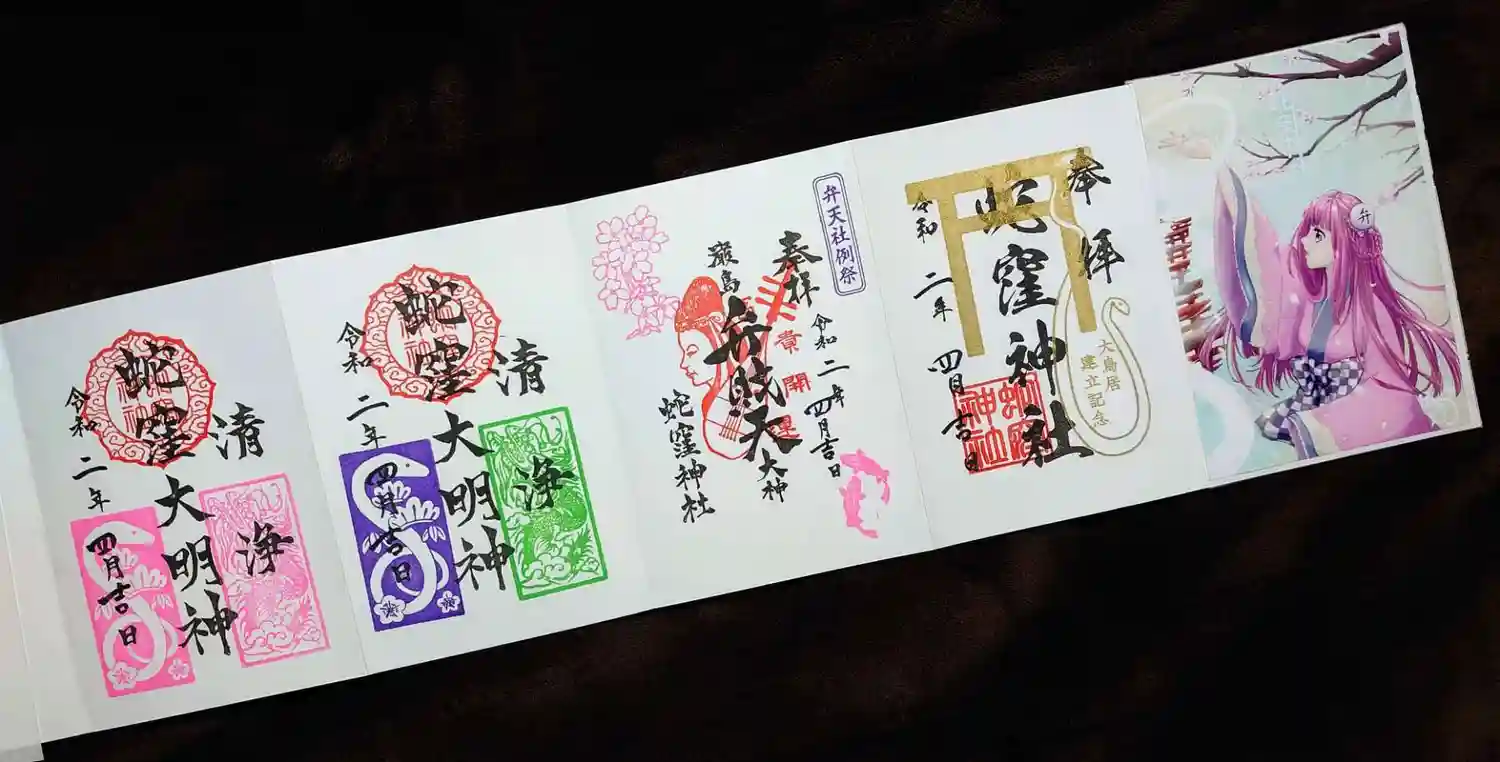 弁
奉拝
蛇窪神社
大鳥居
建立記念
蛇窪
神社
令和二年四月吉日
弁天社例祭
奉拝
令和二年四月吉日
開運
巌島弁財天大神
蛇窪神社
清浄
蛇窪大明神
令和二年四月吉日
清浄
蛇窪大明神
令和二年四月吉日